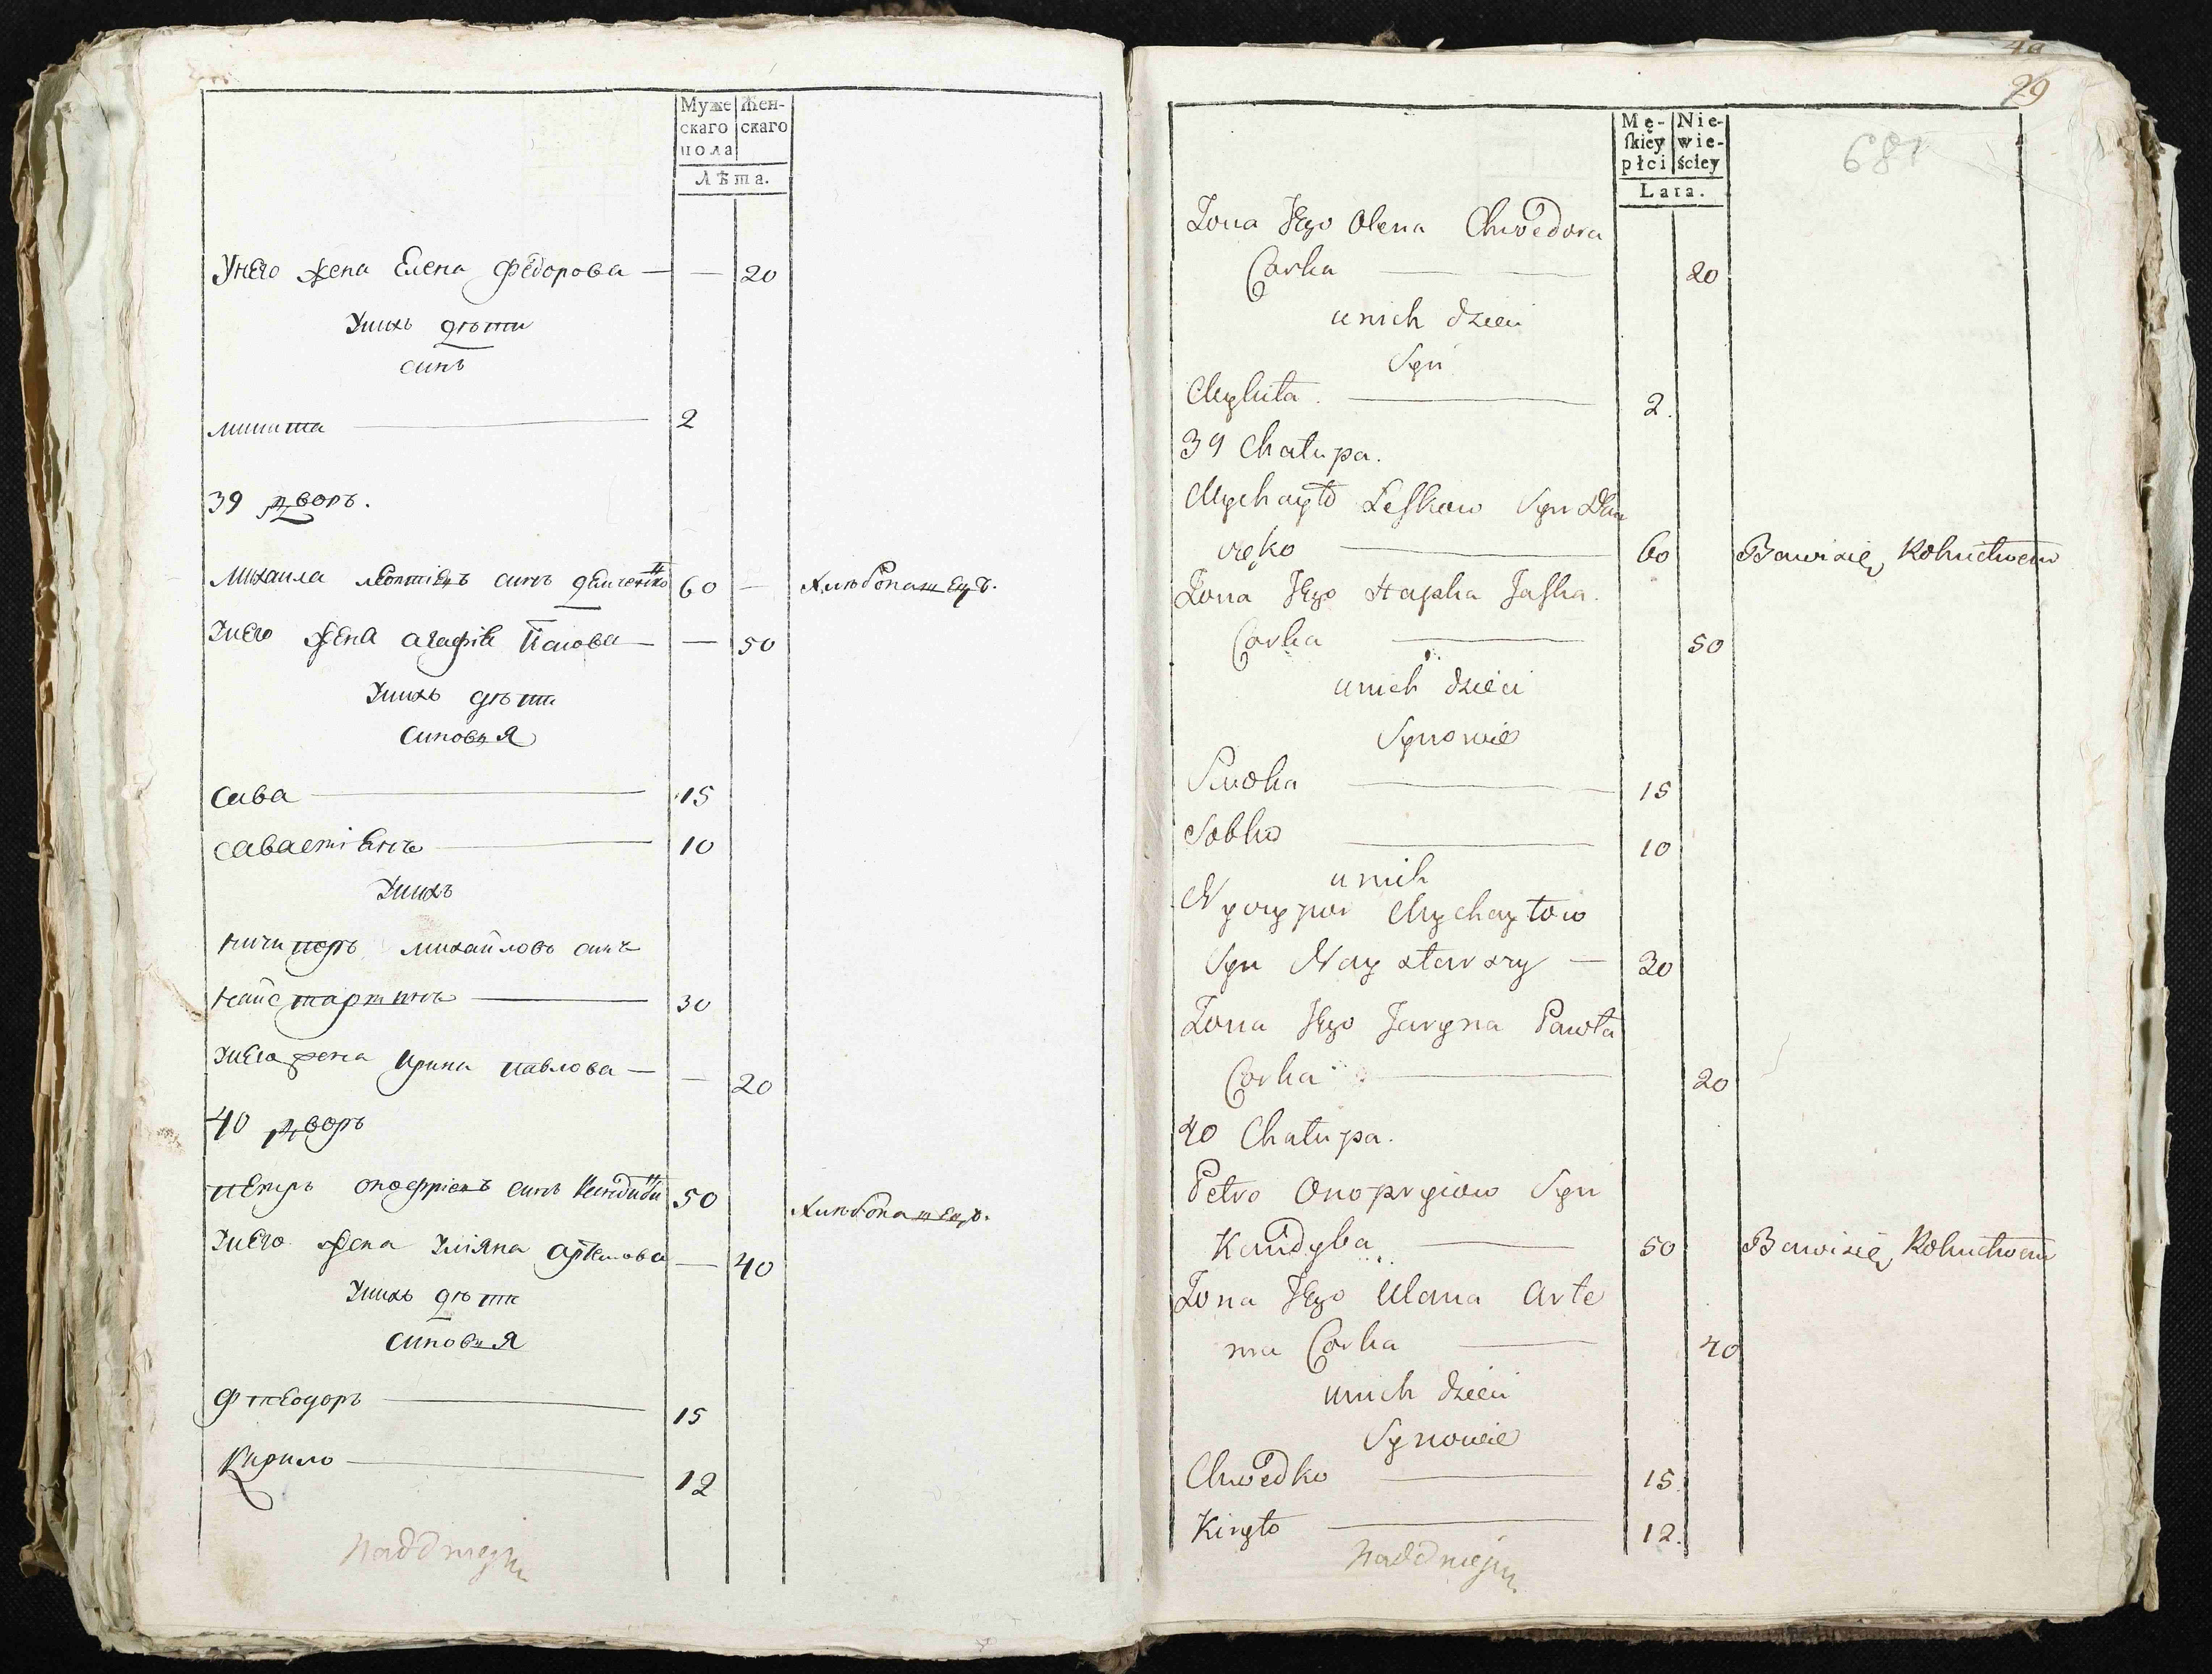 Муже
скаго
пола
Жен-
скаго
Лѣта.
Унего жена Елена Федорова — — 20
Унихъ дѣти
синъ
микита — 2
39 дворъ.
Михаила леонтіевъ синъ 60 — хлѣбопашецъ.
Унего жена агафія Иакова — — 50
Унихъ дѣти
синовья
сава — 15
савастіянъ — 10
Унихъ
ничипоръ михайловъ синъ
найстаршiй — 30
Унего жена Ирина павлова — — 20
40 дворъ
петръ онофріевъ синъ Кандиби 50 хлѣбопашецъ.
Унего жена Уліяна Артемова — 40
Унихъ дѣти
синовья
Фтеодоръ — 15
Кирило — 12
Naddniepr
40
29
681
Mę-
ſkiéy
płci
Nie-
wie-
ściey
Lata.
Zona Jego Olena Chwedora
Corka — — 20
unich dzieci
Syn
Mykita. — 2.
39 Chałupa.
Mychayło Leſkow Syn
— 60 Bawisię Rolnictwem
Zona Jego Hapka Jaſka.
Corka — 50
unich dzieci
Synowie
— 15
— 10
unich
Nyczypor Mychayłow
Syn Nay starszy — 30
Zona Jego Jaryna Pawła
Corka — 20
40 Chałupa.
Petro Onopryiow Syn
Kandyba — 50 Bawisię Rolnictwem
Zona Jego Ulana Arte
ma Corka — 40
unich dzieci
Synowie
Chwedko — 15
Kiryło — 12.
Naddniepr